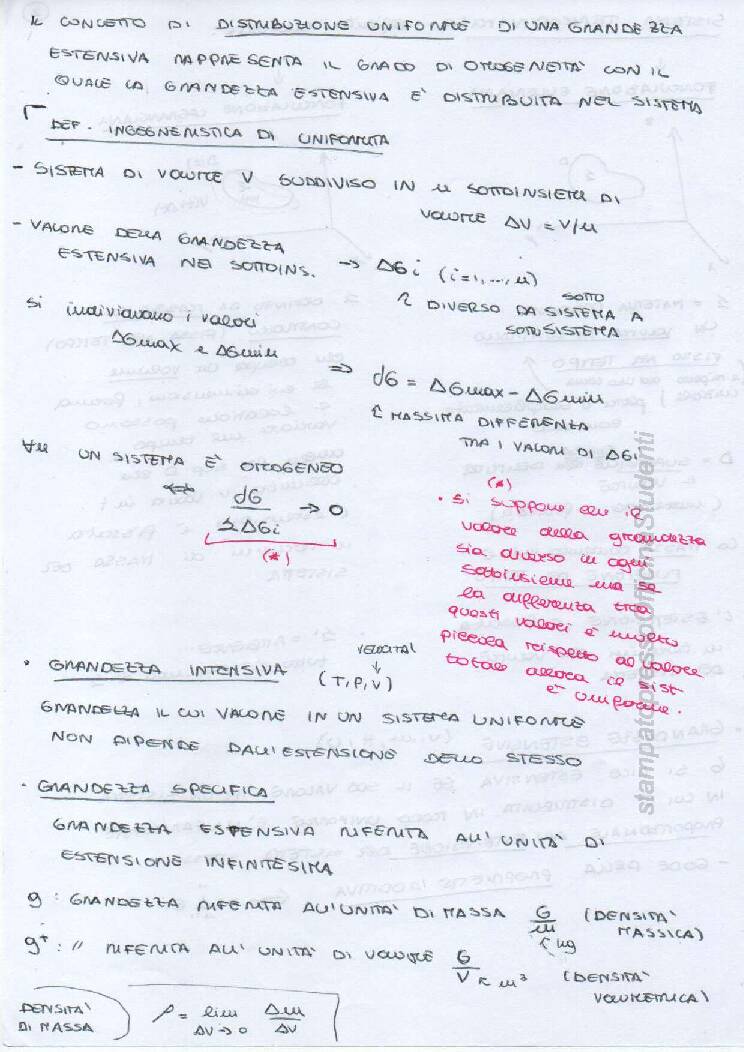 IL CONCETTO DI DISTRIBUZIONE UNIFORME DI UNA GRANDEZZA
ESTENSIVA RAPPRESENTA IL GRADO DI OMOGENEITA' CON IL
QUALE LA GRANDEZZA ESTENSIVA E' DISTRIBUITA NEL SISTEMA
DEF. INGEGNERISTICA DI UNIFORMITA
- SISTEMA DI VOLUME V SUDDIVISO IN n SOTTOINSIEMI DI
VOLUME ΔV = V/n
- VALORE DELLA GRANDEZZA
ESTENSIVA NEI SOTTOINS. → ΔGi (i=1,...,n)
DIVERSO DA SISTEMA A
SOTTO
SOTTOSISTEMA
si individuano i valori
ΔGmax e ΔGmin
⇒ dG = ΔGmax - ΔGmin
MASSIMA DIFFERENZA
TRA I VALORI DI ΔGi
∀n UN SISTEMA È OMOGENEO
⇔ dG / ΣΔGi → 0
(*)
(*)
• Si suppone che il
valore della grandezza
sia diverso in ogni
sottoinsieme ma se
la differenza tra
questi valori è molto
piccola rispetto al valore
totale allora il sist
è uniforme.
stampatopressoOfficine Studenti
VELOCITA'
• GRANDEZZA INTENSIVA (T, P, V)
GRANDEZZA IL CUI VALORE IN UN SISTEMA UNIFORME
NON DIPENDE DALL'ESTENSIONE DELLO STESSO
• GRANDEZZA SPECIFICA
GRANDEZZA ESTENSIVA RIFERITA ALL'UNITA' DI
ESTENSIONE INFINITESIMA
g : GRANDEZZA RIFERITA ALL'UNITA' DI MASSA G/m (DENSITA'
MASSICA)
kg
g⁺ : // RIFERITA ALL' UNITA' DI VOLUME G/V m³ (DENSITA'
VOLUMETRICA)
DENSITA'
DI MASSA
ρ = lim ΔV→0 Δm/ΔV